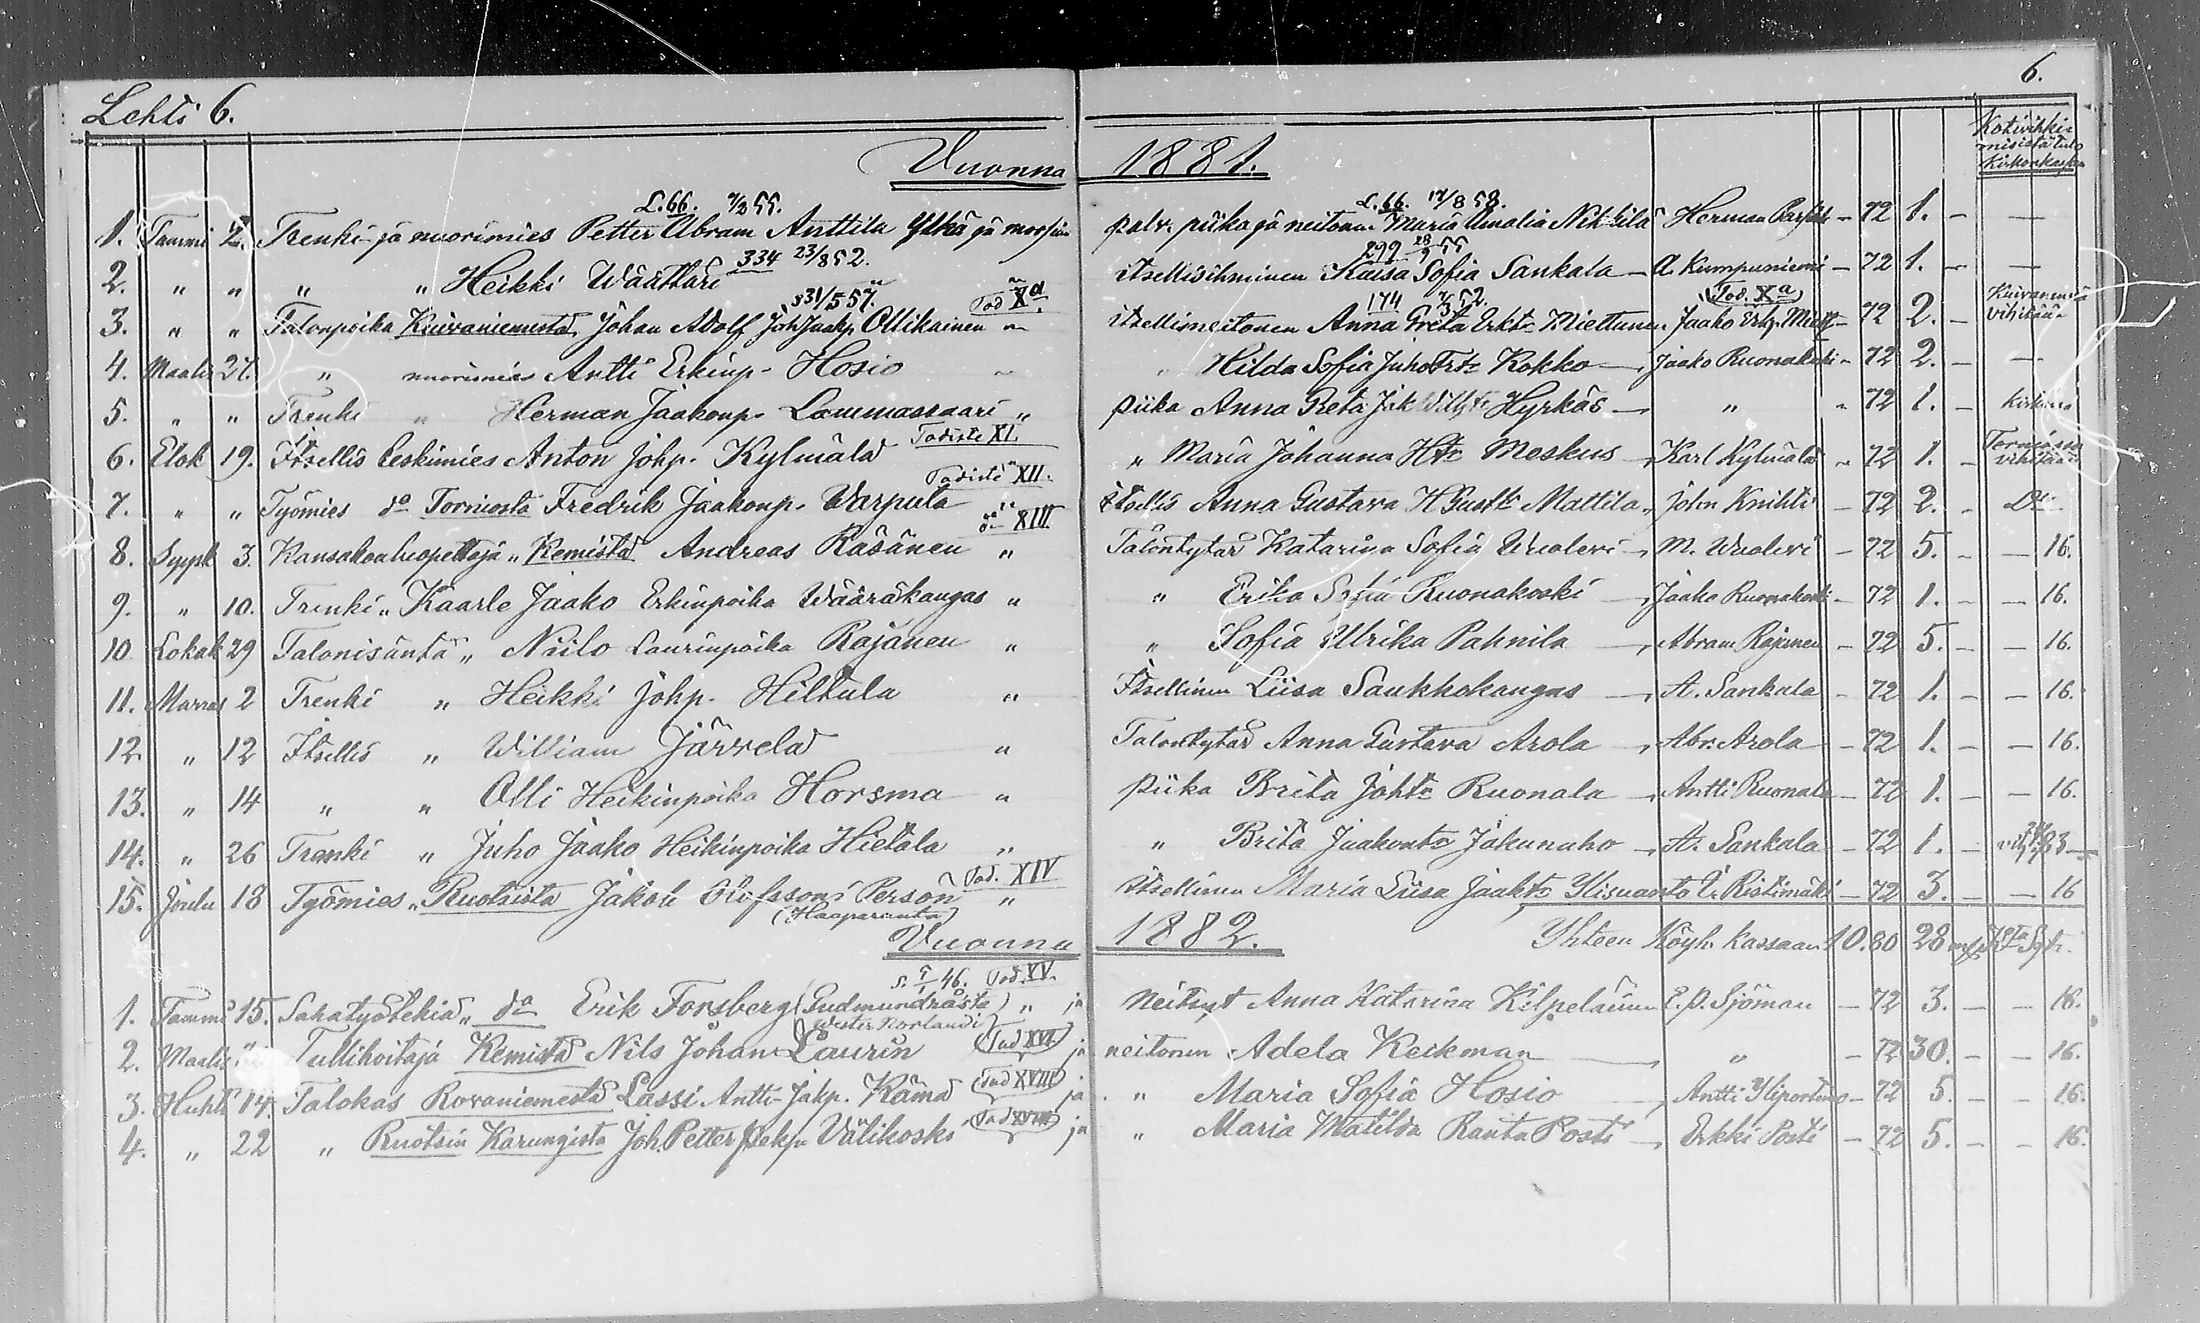 Lehti 6.
6.
Kotivihki-
misistä tulo
Kirkonkassan
Vuonna 1881.
L. 66. 7/2 55. L. 66. 17/8 58.
1. Tammi 2. Trenki ja nuorimies Petter Abram Anttila Ylkä ja morsian palv. piika ja neitonen Maria Amalia Nikkilä Herman - 72 1. - -
334 23/8 52. 299 28/9 55
2. " " " " Heikki Wäättäri " itsellisihminen Kaisa Sofia Sankala - A. Kumpuniemi - 72 1. - -
s 31/5 57. Tod Xa. 174 7/3 52. Tod. Xa
3. " " Talonpoika Kuivaniemestä Johan Adolf Joh Jaakp. Ollikainen itsellisneitonen Anna Greta Erkt. Miettunen Jaako Erkp. Miett - 72 2. - Kuivaniemi vihitään
4. Maalis 27. " nuorimies Antti Erkinp. Hosio " Hilda Sofia Juho Frt. Kokko - Jaako Ruonakoski - 72 2. - -
5. " " Trenki " Herman Jaakonp. Lammassaari " piika Anna Greta Jak Hyrkäs - " " 72 1. -
Todiste XI.
6. Elok 19. Itsellis leskimies Anton Johp. Kylmälä " Maria Johanna Ht. Meskus - Karl Kylmälä - 72 1. - Torniossa vihitään
Todiste XII.
7. " " Työmies da Torniosta Fredrik Jaakonp. Warputa Itsellis Anna Gustava H Gustt. Mattila - John Knihti - 72 2. - Do
do XIII
8. Syysk 3. Kansakouluopettaja " Kemistä Andreas Räsänen " Talontytär Katarina Sofia Wuolevi - M. Wuolevi - 72 5. - - 16.
9. " 10. Trenki " Kaarle Jaako Erkinpoika Wääräkangas " " Erika Sofia Ruonakoski - Jaako Ruonakoski - 72 1. - - 16.
10. Lokak 29 Talonisäntä " Niilo Laurinpoika Rajanen " " Sofia Ulrika Pahnila - Abram Rajanen - 72 5. - - 16.
11. Marras 2 Trenki " Heikki Johp. Hiltula " Itsellinen Liisa Saukkokangas - A. Sankala - 72 1. - - 16.
12. " 12 Itsellis " William Järvelä " Talontytär Anna Gustava Arola - Abr. Arola - 72 1. - - 16.
13. " 14 " " Olli Heikinpoika Horsma " piika Brita Joht. Ruonala - Antti Ruonala - 72 1. - - 16.
14. " 26 Trenki " Juho Jaako Heikinpoika Hietala " " Brita Jaakont. Jakunaho - A. Sankala - 72 1. -
Tod. XIV
15. Joulu 18 Työmies " Ruotsista Jakob Olofsson Person " itsellinen Maria Liisa Jaakt. Ylisuanto E. Ristimäki - 72 3. - - 16
(Haaparanta)
Vuonna 1882. Yhteen Köyh. kassaan 10.80 28
s. 5/1 46. Tod. XV.
1. Tammi 15. Sahatyöntekiä " da Erik Forsberg (Gudmundråsta) " ja Neitsyt Anna Katarina Kilpeläinen E. P. Sjöman - 72 3. - - 16.
Wester Norlandi
2. Maalis Tullihoitaja Kemistä Nils Johan Laurin (Tod XVI) ja neitonen Adela Keckman - " - 72 30. - - 16.
3. Huhti 14. Talokas Rovaniemeltä Lassi Antti Jakp. Kämä (Tod XVII) ja " Maria Sofia Hosio - Antti Yliportimo - 72 5. - - 16.
4. " 22 " Ruotsin Karungista Joh. Petter Jakp. Välikoski (Tod XVIII) ja " Maria Matilda Ranta Posti - Erkki Posti - 72 5. - - 16.